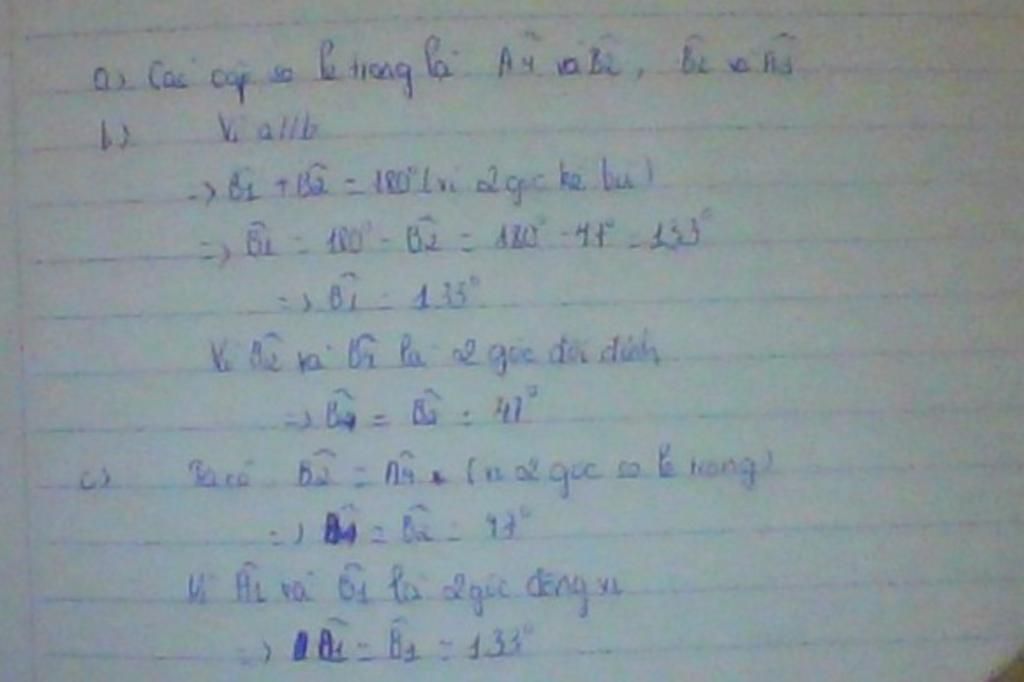 a) Các cặp so le trong là Â4 và B̂2, B̂1 và Â3
b) Vì a//b
=> B̂1 + B̂2 = 180° (vì 2 góc kề bù)
=> B̂1 = 180° - B̂2 = 180° - 47° = 133°
=> B̂1 = 133°
Vì B̂2 và B̂4 là 2 góc đối đỉnh
=> B̂4 = B̂2 = 47°
c) Ta có B̂2 = Â4 (vì 2 góc so le trong)
=> Â4 = B̂2 = 47°
Vì Â1 và B̂1 là 2 góc đồng vị
=> Â1 = B̂1 = 133°